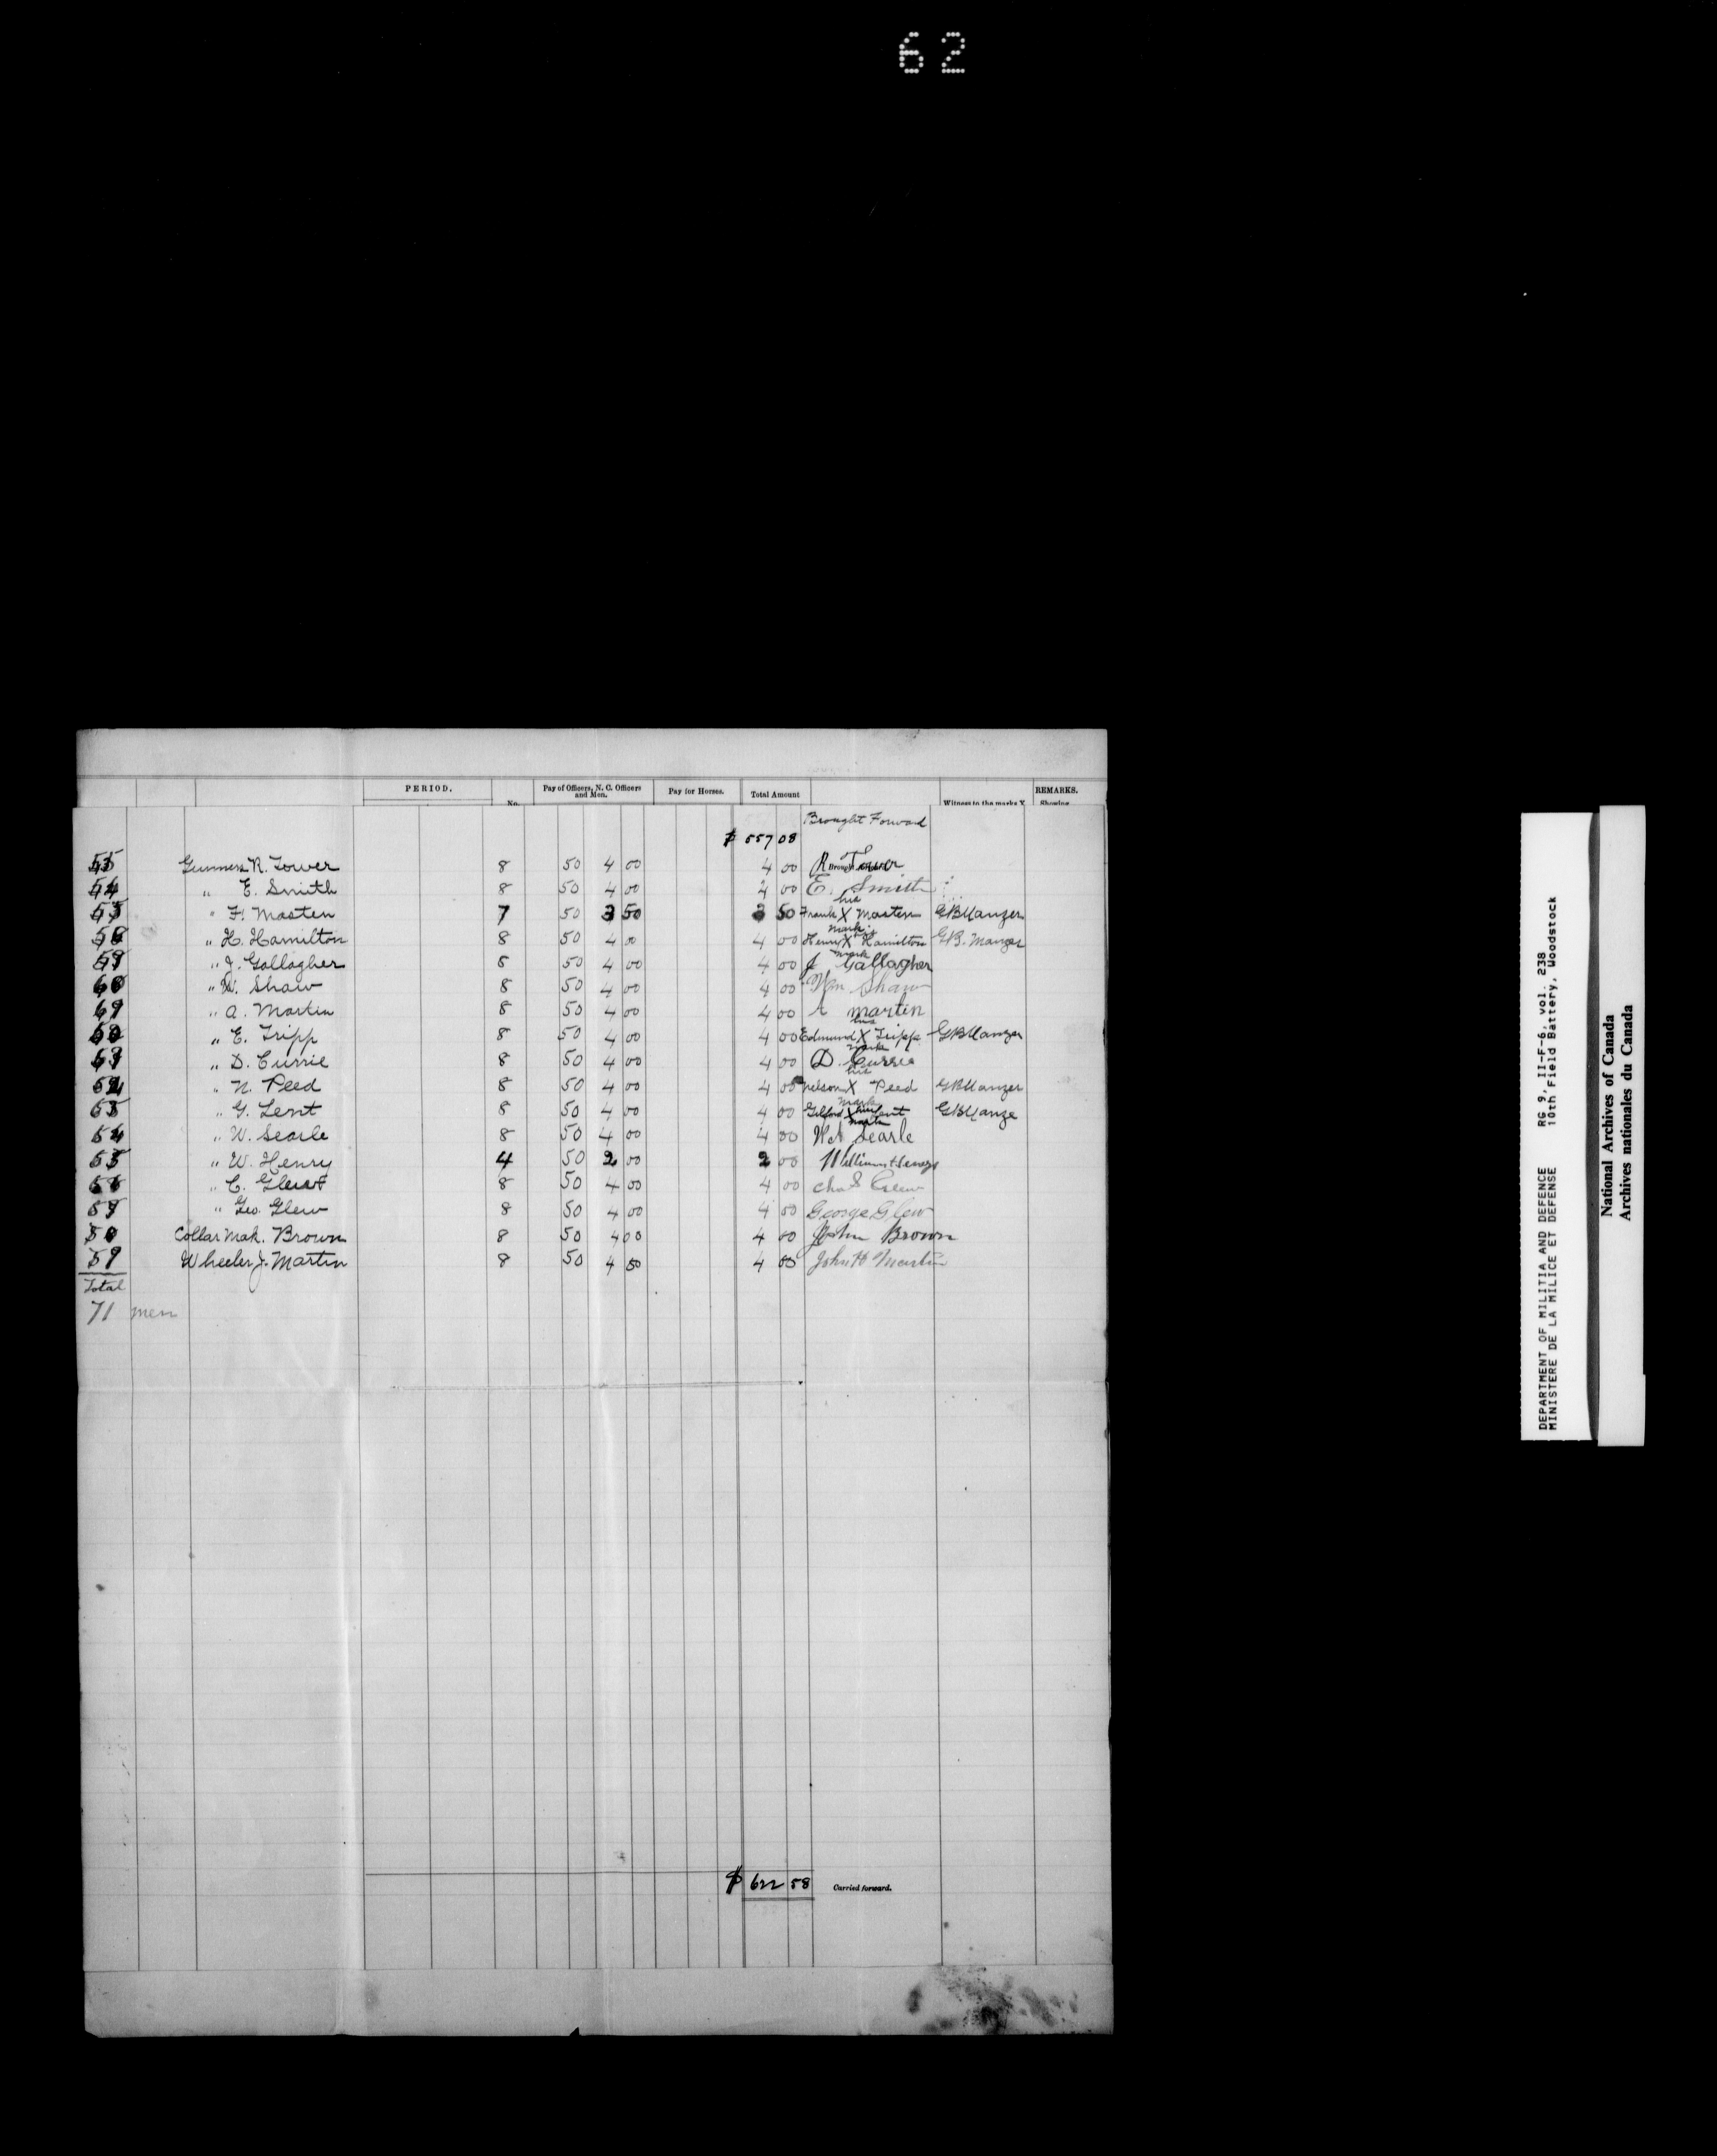 62
PERIOD. No. Pay of Officers, N. C. Officers and Men. Pay for Horses. Total Amount Witness to the marks X REMARKS. Showing
Brought Forward
$ 557 08
Gunners R. Tower 8 50 4 00 4 00 R Tower
" E. Smith 8 50 4 00 4 00 E. Smith
" F. Masten 7 50 3 50 3 50 Frank his X mark Masten GB Manzer
" H. Hamilton 8 50 4 00 4 00 Henry his X mark Hamilton G.B. Manzer
" J. Gallagher 8 50 4 00 4 00 J Gallagher
" W. Shaw 8 50 4 00 4 00 Wm. Shaw
" A. Martin 8 50 4 00 4 00 A martin
" E. Tripp 8 50 4 00 4 00 Edmund his X mark Tripp GB Manzer
" D. Currie 8 50 4 00 4 00 D. Currie
" N. Peed 8 50 4 00 4 00 Nelson his X mark Peed GB Manzer
" G. Lent 8 50 4 00 4 00 his X mark Lent GB Manze
" W. Searle 8 50 4 00 4 00 Searle
" W. Henry 4 50 2 00 2 00 William Henry
" C. 8 50 4 00 4 00 Chas
" Geo. Glew 8 50 4 00 4 00 George Glew
Collar Mak. Brown 8 50 4 00 4 00 John Brown
59 Wheeler J. Martin 8 50 4 00 4 00 John H Martin
Total
71 men
$ 622 58 Carried forward.
DEPARTMENT OF MILITIA AND DEFENCE RG 9, II-F-6, vol. 238
MINISTERE DE LA MILICE ET DEFENSE 10th Field Battery, Woodstock
National Archives of Canada
Archives nationales du Canada